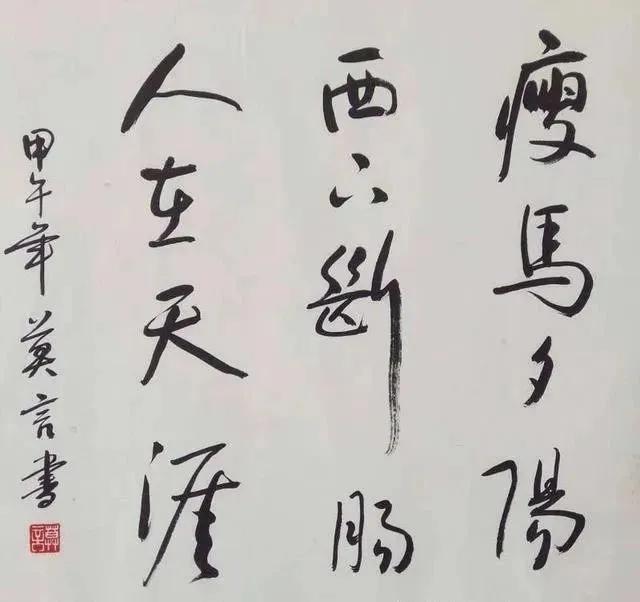 瘦馬夕陽
西下斷腸
人在天涯
甲午年 莫言書
莫言